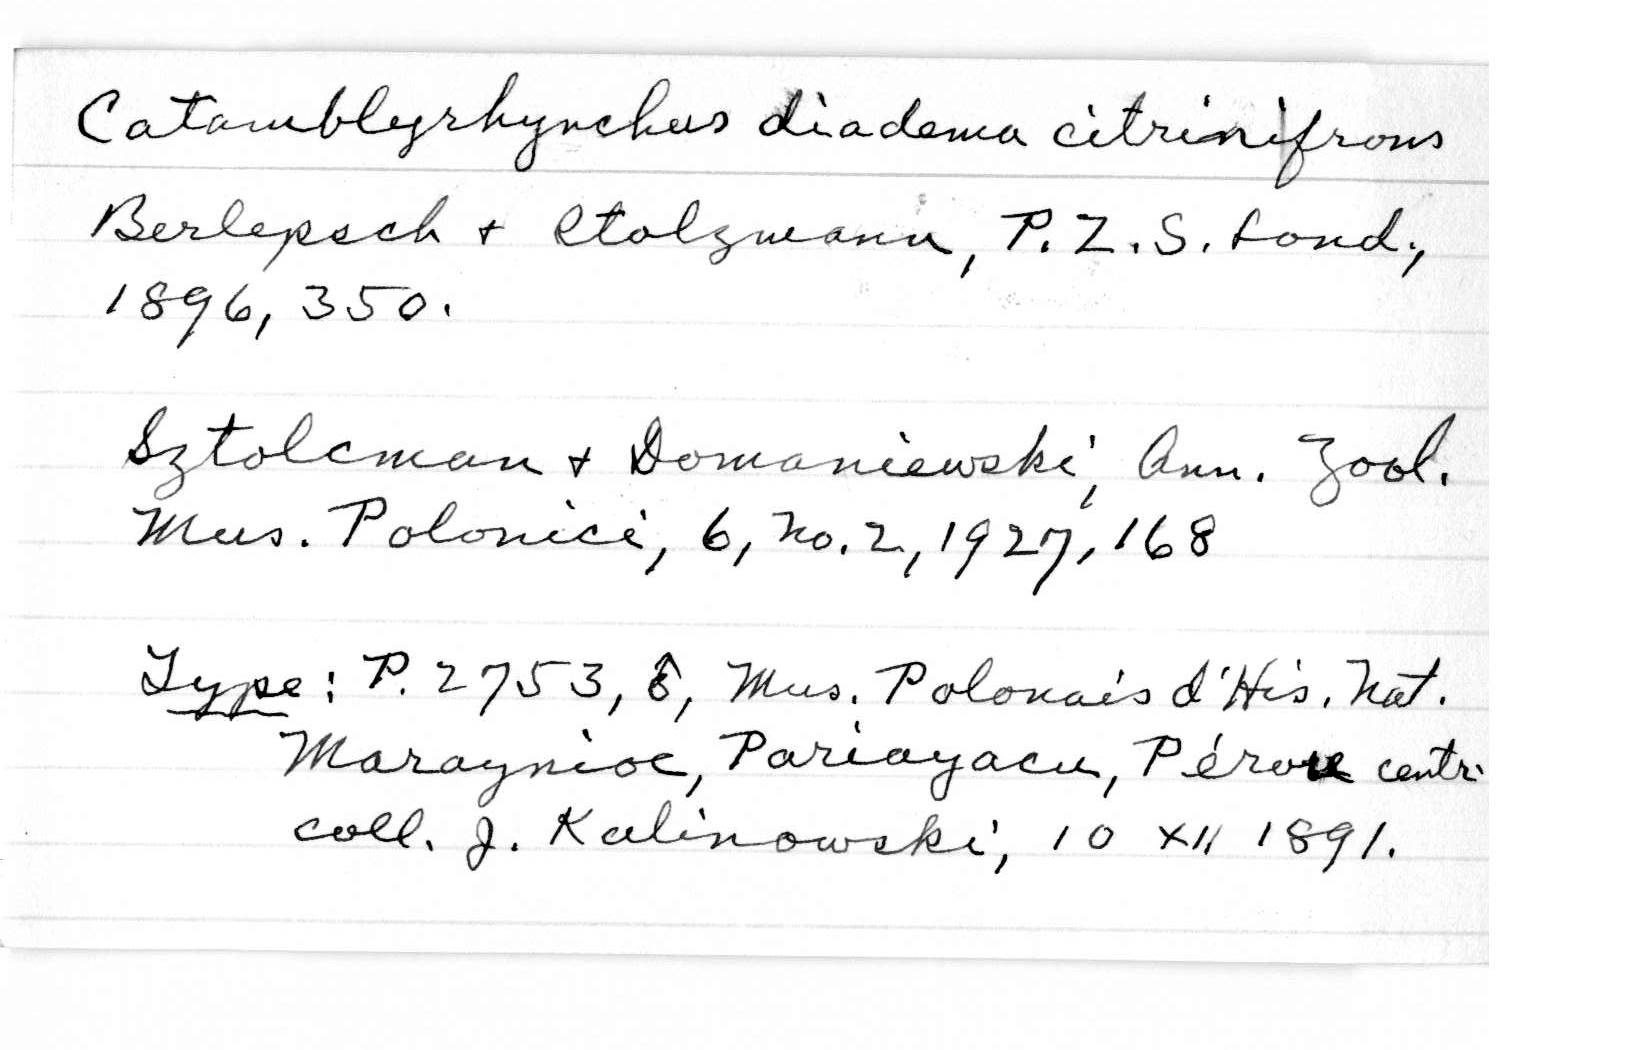 Catamblyrhynchus diadema citrinifrons
Berlepsch + Stolzmann, P.Z.S. Lond.,
1896, 350.
Sztolcman + Domaniewski, Ann. Zool.
Mus. Polonici, 6, no. 2, 1927, 168
Type: P. 2753, ♂, Mus. Polonais d'His. Nat.
Maraynioc, Pariayacu, Pérou centr.
coll. J. Kalinowski, 10 XII 1891.